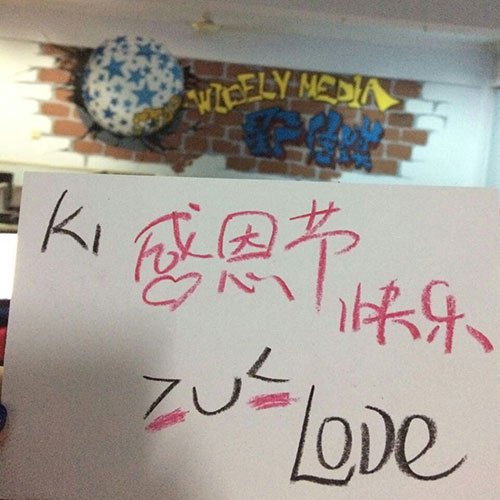 WIGELY MEDIA
KI 感恩节
快乐
ZUL
LOVE